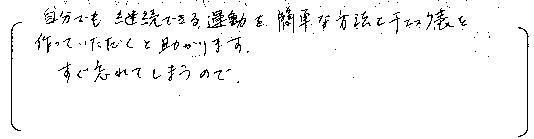 自分でも継続できる運動を簡単な方法とチェック表を
作っていただくと助かります。
すぐ忘れてしまうので。